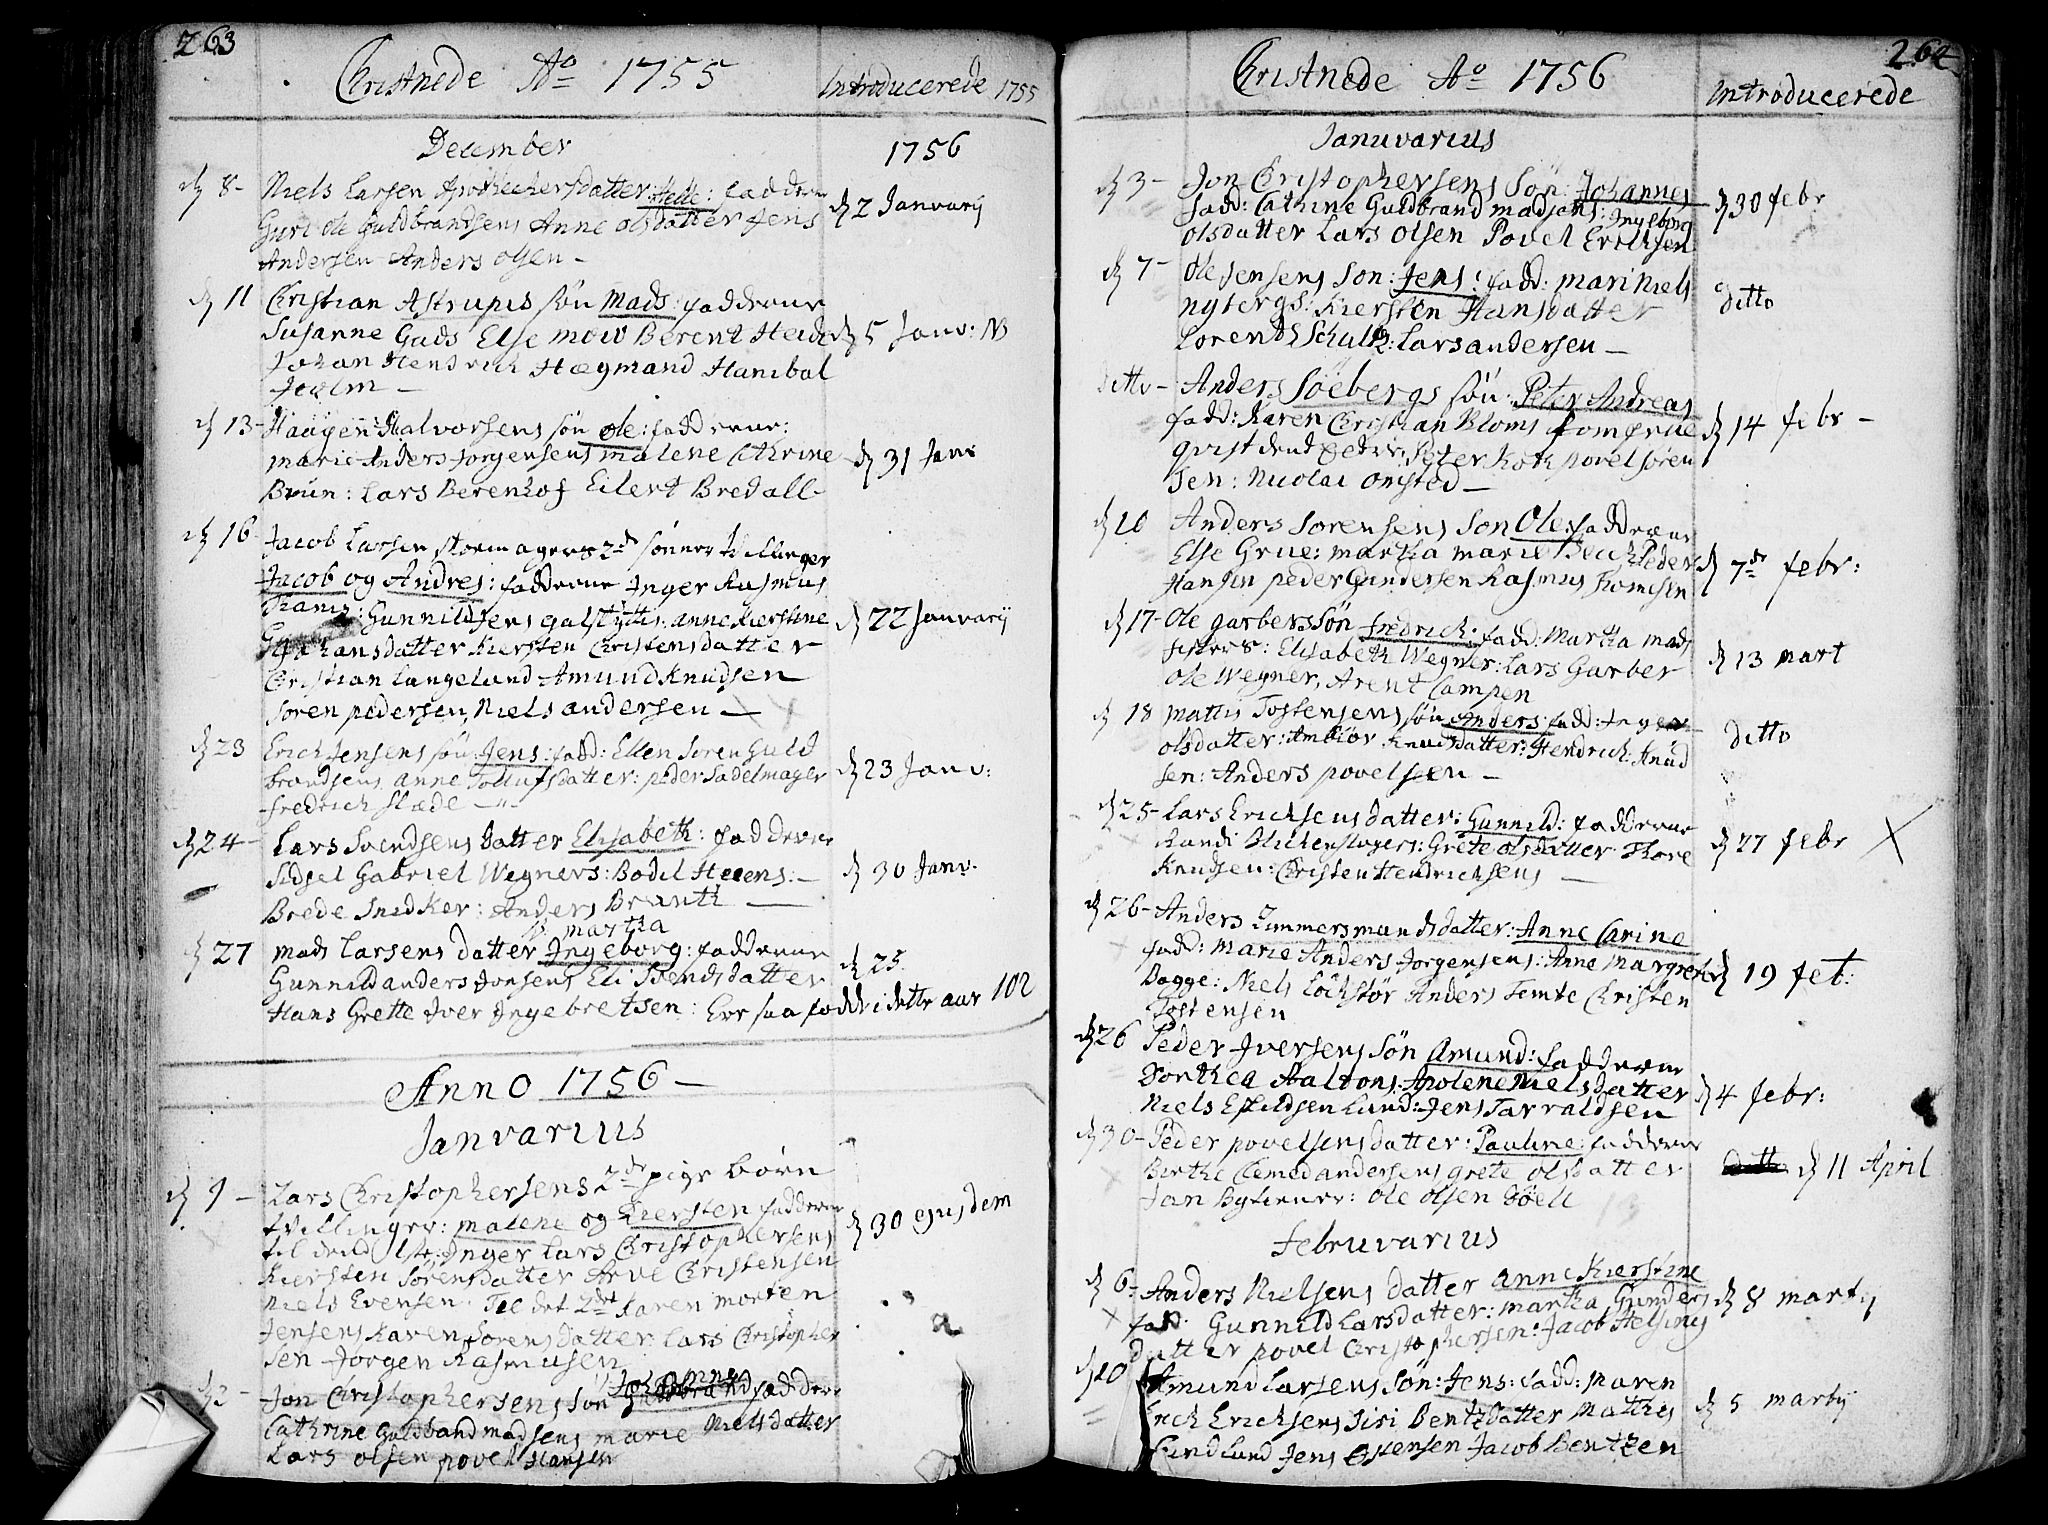 263
Christnede Ao 1755
Introducerede 1755
December
1756
d 8- Niels Larsen Apothechersdatter: Helle: fadderne
Guri Ole Guldbrandsens Anne olsdatter Jens
Andersen Anders olsen -
d 2 Januarij
d 11 Christian Astrupis søn Mads: fadderne
Susanne Gads Else mow Berent Heide
Johan Hendrich Hægmand Hanibal
Holm -
d 5 Janv:
d 13- Haagen Halvorsens søn Ole: fadderne:
marie Anders Jorgensens malene Cathrine
Brun: Lars Berenhof Eilert Bredall-
d 31 Janv
d 16- Jacob Larsen 2de sønner tvillinger
Jacob og Andres: fadderne Inger Rasmus
: Gunnild Jens anne Kierstine
Johansdatter Kiersten Christensdatter
Christian Langelund Amund Knudsen
Soren pedersen, Niels andersen -
d 22 Januarij
d 23 Erich Jensens søn Jens: fadd: Ellen Soren Guld
brandsens anne Tollufsdatter: peder Sadelmager
fredrich Slæde -
d 23 Janv:
d 24- Lars Svendsens datter Elisabeth: fadderne
Sidsel Gabriel Wegners: Bodil Heeens: -
Brede Snidker: Anders Brunk -
d 30 Janv:
martha
d 27 mads Larsens datter Ingeborg: fadderne
Gunnild anders Jonsens Eli Svendsdatter
Hans Grette Iver Ingebretsen: Ere saa fødde i dette aar 102
d 25
Anno 1756 -
Januarius
d 9 - Lars Christophersens 2de pige børn
tvillinger: malene og Kiersten fadderne
til Inger Lars Christophersens
Kiersten Sørensdatter Arve Christensen
Niels Evensen. Til det 2det Karen morten
Jensens Karen Sorensdatter Lars Christopher
sen Jorgen Rasmusen
d 30 ejusdem
Johannes
Jon Christophersens son fadderne
Cathrine Guldband madsens marie Nielsdatter
Lars olsen povel Hansen
264
Christnede Ao 1756
Introducerede
Januvarius
d 3- Jon Christophersens Søn: Johannes
fadd: Cathrine Guldbrand madsens: Ingeborg
olsdatter Lars Olsen Povel Erichsen
d 30 febr
d 7- Ole Jensens son: Jens: fadd: mari Niels
nybergs: Kiersten Hansdatter
Lorents Schultz: Lars andersen -
ditto
ditto- Anders Soebergs søn: Peter Andreas
fadd: Karen Christian Bloms Jomfrue
qvist Peter Koth povel soren
sen: Nicolai onsted -
d 14 febr -
d 10 Anders Sorensens Son Ole: fadderne
Else Grue: martha marie Bech: Peder
Hansen peder Gundersen Rasmus Tromsen
d 7de febr:
d 17- Ole garbers søn fredrich: fadd: Martha mads
fisters: Elisabeth Wegner: Lars Garber
Ole Wegner, Arent Campen
d 13 mart
d 18 Mattis Tostensens søn Anders: fadd: Inger
olsdatter: Ambiør Knudsdatter: Hendrich Knud
sen: Anders povelsen -
ditto
d 25- Lars Erichsens datter: Gunnild: fadderne
Randi Grete olsdatter Thore
Knudsen: Christen Hendrichsens -
d 27 febr X
d 26- Anders Zimmermands datter: Anne Carine
fadd: Marie Anders Jorgensens: Anne Margrethe
Dagge: Niels Lochstør Anders Temte Christen
Tostensen
d 19 feb:
d 26 Peder Iversens søn Amund: fadderne
Dorthea Aaltons: Apolene Niels datter
Niels Eskildsen Lund: Jens Tarraldsen
d 4 febr:
d 30- Peder povelsens datter: Pauline: fadderne
Berthe Clemed andersens grete olsdatter
Jan Byterner: Ole olsen Døell
ditto d 11 April
Februvarius
d 6- Anders Nielsens datter anne Kierstine
fad: Gunnild Larsdatter: martha Gunders
datter povel Christophersen: Jacob Helsing
d 8 martij
d 10 Amund Larsens søn: Jens: fadd: maren
Erich Erichsens Siri Bentzdatter Mathis
Lund Jens Jacob Bentzen
d 5 martij